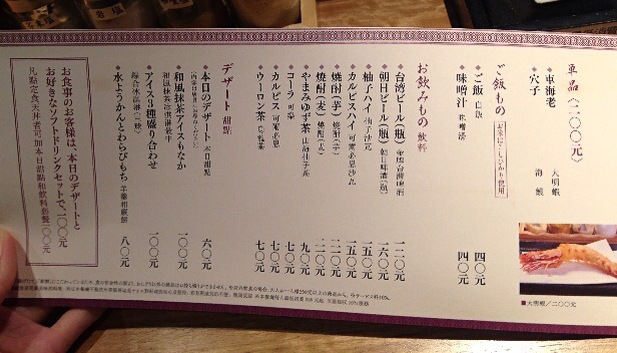 単品（二〇〇元）
◆車海老 大明蝦
◆穴子 海鰻
ご飯もの お米はこしひかり使用
◆ご飯 白飯 四〇元
◆味噌汁 味噌湯 四〇元
お飲みもの 飲料
◆台湾ビール（瓶） 一二〇元
◆朝日ビール（瓶） 一六〇元
◆柚子ハイ 一五〇元
◆カルピスハイ 一五〇元
◆焼酎（芋） 焼酎（芋） 一二〇元
◆焼酎（麦） 焼酎（麥） 一二〇元
◆やまみゆず茶 九〇元
◆コーラ 可樂 七〇元
◆カルピス 可爾必思 七〇元
◆ウーロン茶 烏龍茶 七〇元
デザート 甜點
◆本日のデザート 本日甜點 六〇元
◆和風抹茶アイスもなか 一〇〇元
◆アイス3種盛り合わせ 一〇〇元
◆水ようかんとわらびもち 羊羹和蕨餅 八〇元
お食事のお客様は、本日のデザートと
お好きなソフトドリンクセットで、一〇〇元
凡點定食天丼者可加本日甜點和飲料套餐一〇〇元
■大明蝦／二〇〇元